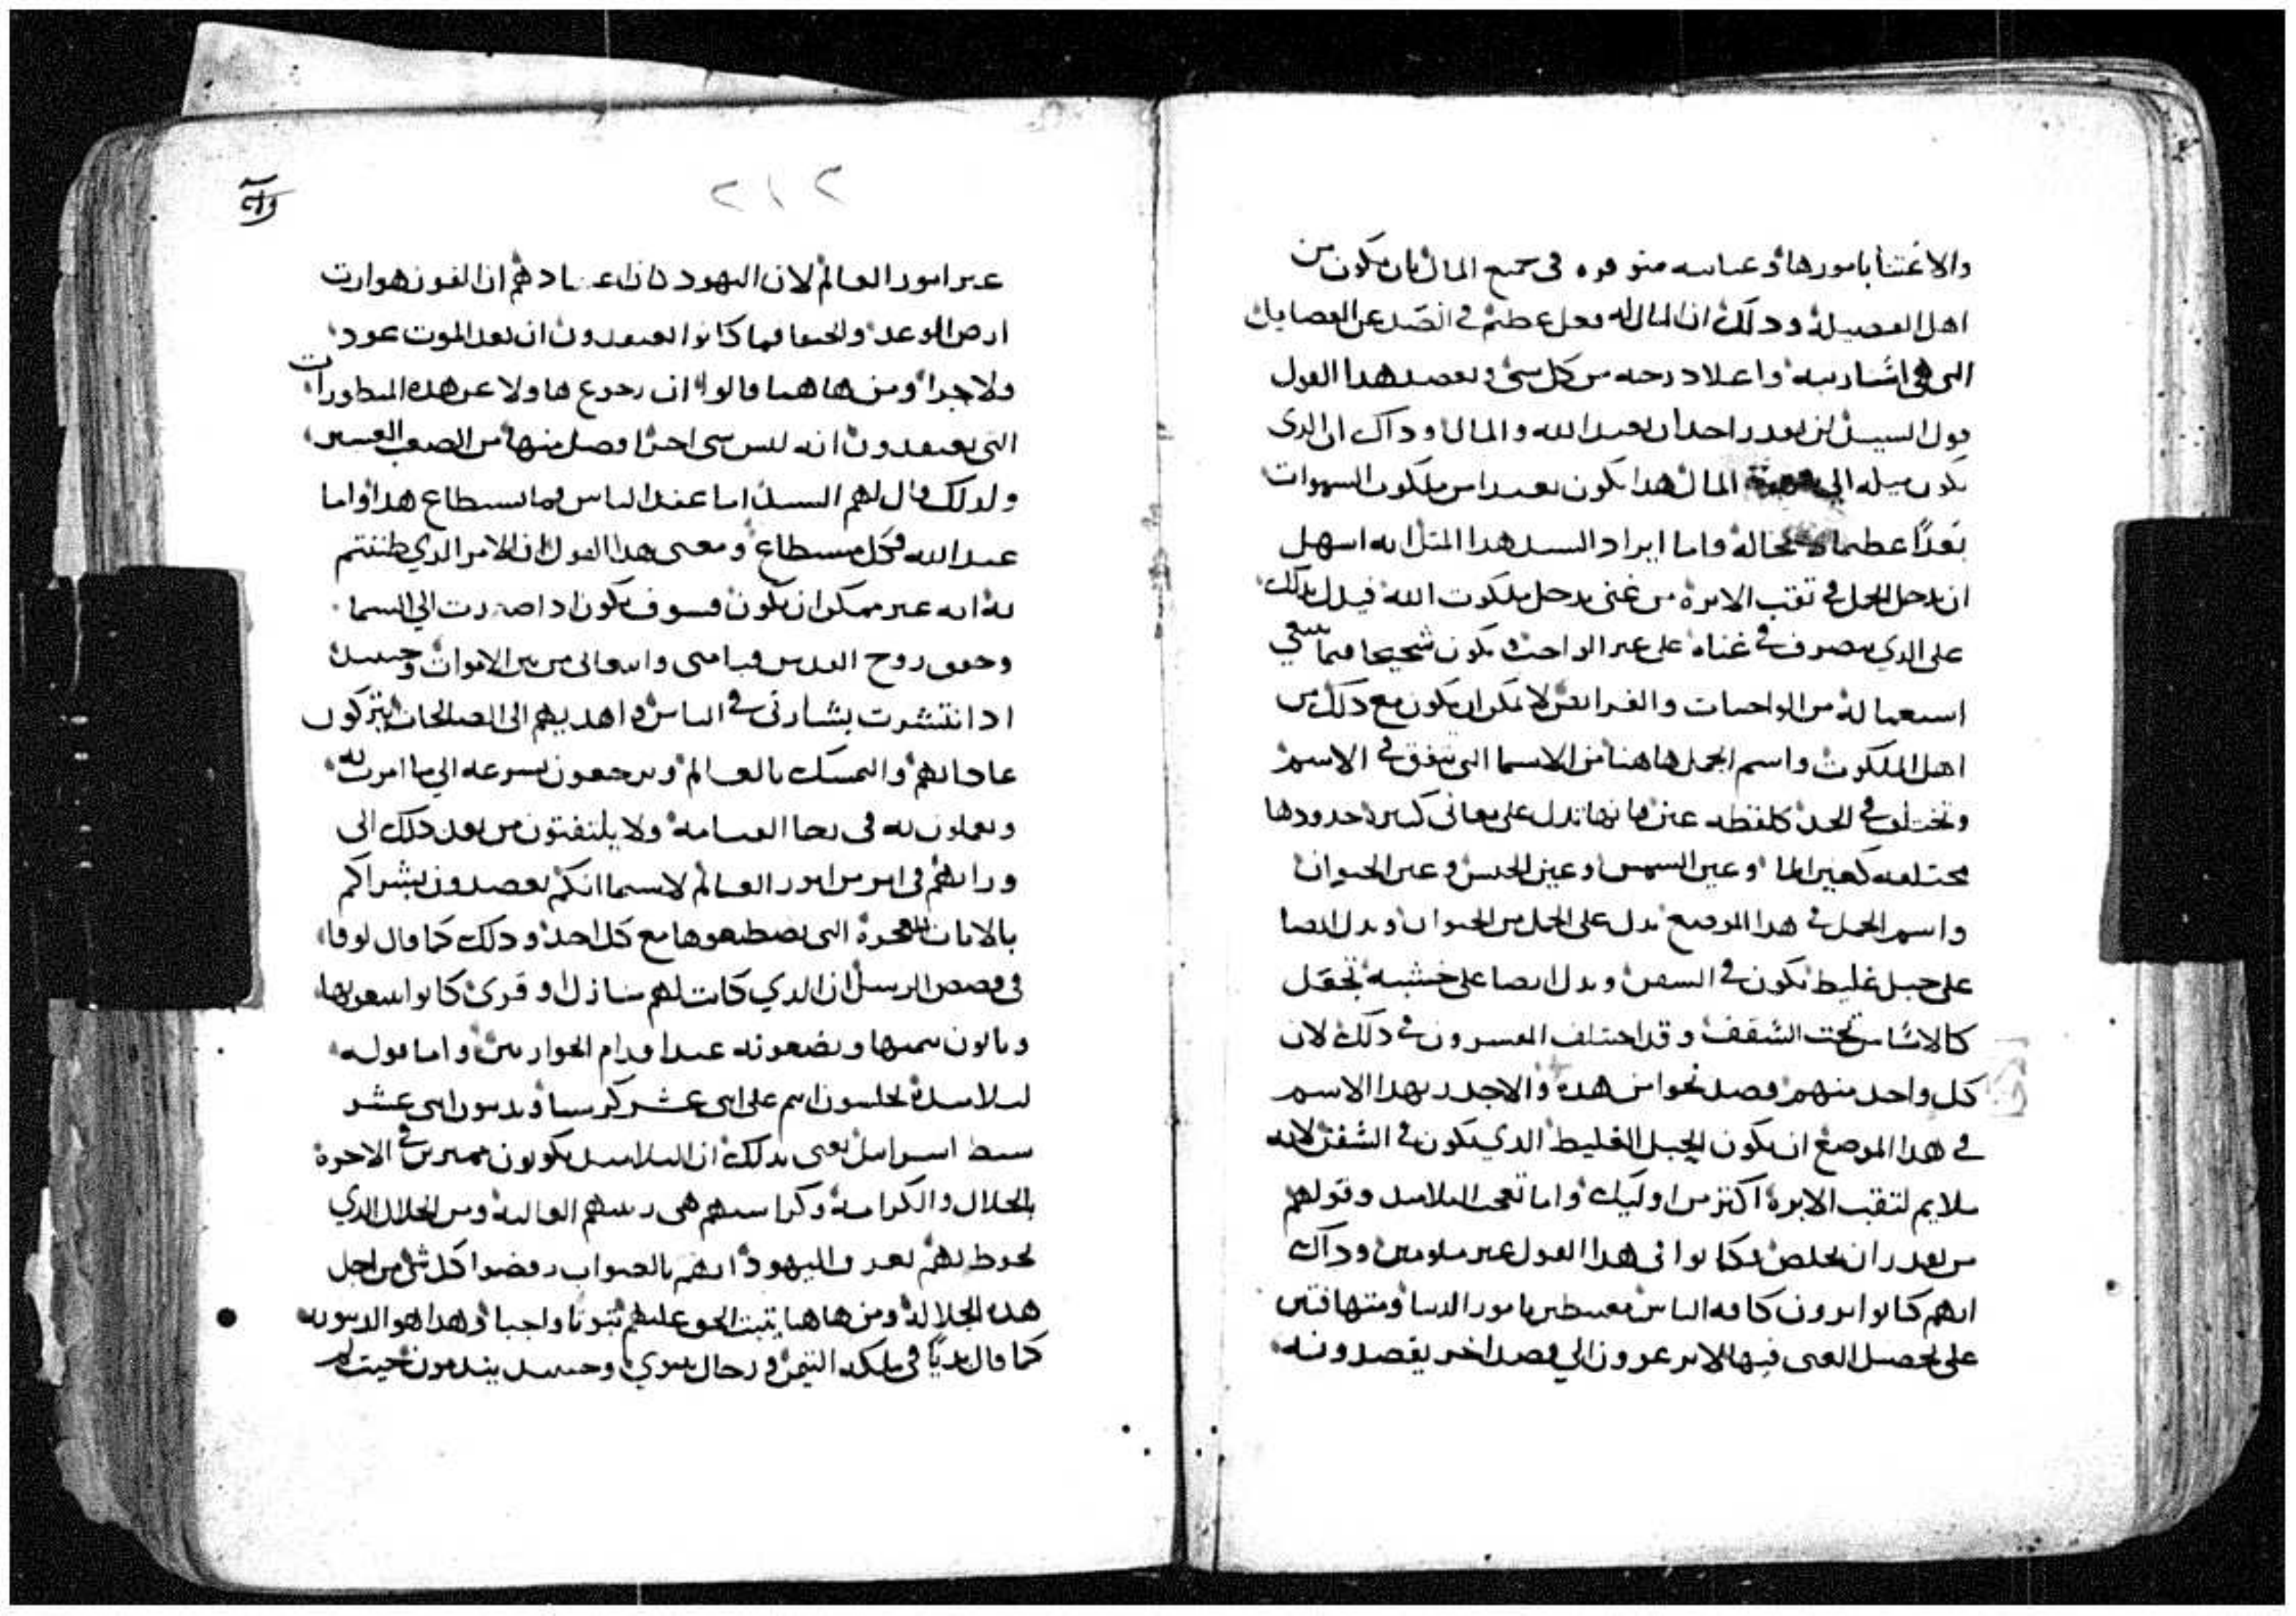 والاعتنا بامورها وعنايته متوفره فى جميع المال بان يكون من
اهل الفضيلة وذلك ان المال له فعل عظيم في الصد عن الفضايل
التي هي اشار بيه واعلا درجه من كل شي ويعضد هذا القول
قول السيد لن يقدر احد ان يعبد الله والمال وداك ان الدى
يكون ميله الي المال هدا يكون بعيدا من ملكوت السموات
بعدًا عظيما لا محاله واما ايراد السيد هدا المثل انه اسهل
ان يدخل الجمل في ثقب الابرة من غنى يدخل ملكوت الله فيدل بدلك
على الدي يتصرف في غناه على غير الواجب ويكون شحيحا فيما ينبغي
استعماله من الواجبات والفرايض لا يمكن ان يكون مع دلك من
اهل الملكوت واسم الجمل هاهنا من الاسما التى تتفق في الاسم
وتختلف في الحد كلفظه عين فانها تدل على معانى كثيرة حدودها
مختلفه كعين الما وعين الشمس وعين الجنس وعين الحيوان
واسم الجمل في هدا الموضع يدل على الجمل من الحيوان ويدل ايضا
على حبل غليظ تكون في السفن ويدل ايضا على خشبه تجعل
كالاساس تحت السقف وقد اختلف المفسرون في دلك لان
كل واحد منهم قصد نحوا من هده والاجدر بهدا الاسم
في هدا الموضع ان يكون الحبل الغليظ الدي يكون في السفن لانه
ملايم لثقب الابرة اكثر من اوليك واما تعجب التلاميد وقولهم
من يقدر ان يخلص فكانوا فى هدا القول غير ملومين وداك
انهم كانوا يرون كافه الناس مغتبطين بامور الدنيا ومتهافتين
على تحصيل الغنى فيها لا يرعوون الي قصد اخر يقصدونه
٢١٢
غير امور العالم لان اليهود كان اعتيادهم ان الفوز هو ارث
ارض الوعد والحيوة فما كانوا يعتقدون ان بعد الموت عود
ولا جزا ومن هاهنا قالوا ان رجوع هاولا عن هده المنظورات
التى يعتقدون انه ليس شى اخر افضل منها من الصعب العسير
ولدلك قال لهم السيد اما عند الناس فما يستطاع هدا واما
عند الله فكل مستطاع ومعنى هدا القول ان الامر الدي ظننتم
به انه غير ممكن ان يكون فسوف يكون ادا صرت الي السما
وحقق روح القدس قيامتى وانبعاثى من بين الاموات وحينيد
ادا انتشرت بشارتى في الناس واهديهم الى الصالحات يتركون
عاداتهم والتمسك بالعالم ويرجعون بسرعه الي ما امرت به
ويعملون به فى رجا القيامه ولا يلتفتون من بعد دلك الى
وراهم فى امر من امور العالم لا سيما انكم تعضدون بشراكم
بالايات المعجزة التى تصطنعوها مع كل احد ودلك كما قال لوقا
فى قصص الرسل ان الدي كانت لهم منازل او قرى كانوا يبيعونها
وياتون بثمنها ويضعونه عند اقدام الحواريين واما قوله
لتلاميده تجلسون انتم على اثنى عشر كرسيا وتدينون اثنى عشر
سبط اسرايل يعنى بدلك ان التلاميد يكونون مميزين في الاخرة
بالجلال والكرامة وكراسيهم هى رتبتهم العاليه ومن الجلال الدي
يحوط بهم يعرف اليهود انهم بالصواب رفضوا كل شي من اجل
هده الجلالة ومن هاهنا يثبت الحق عليهم ثبوتا واجبا وهدا هو الدينونه
كما قال بديًا فى ملكه التيمن ورجال نينوي وحينيد يندمون حيث لم